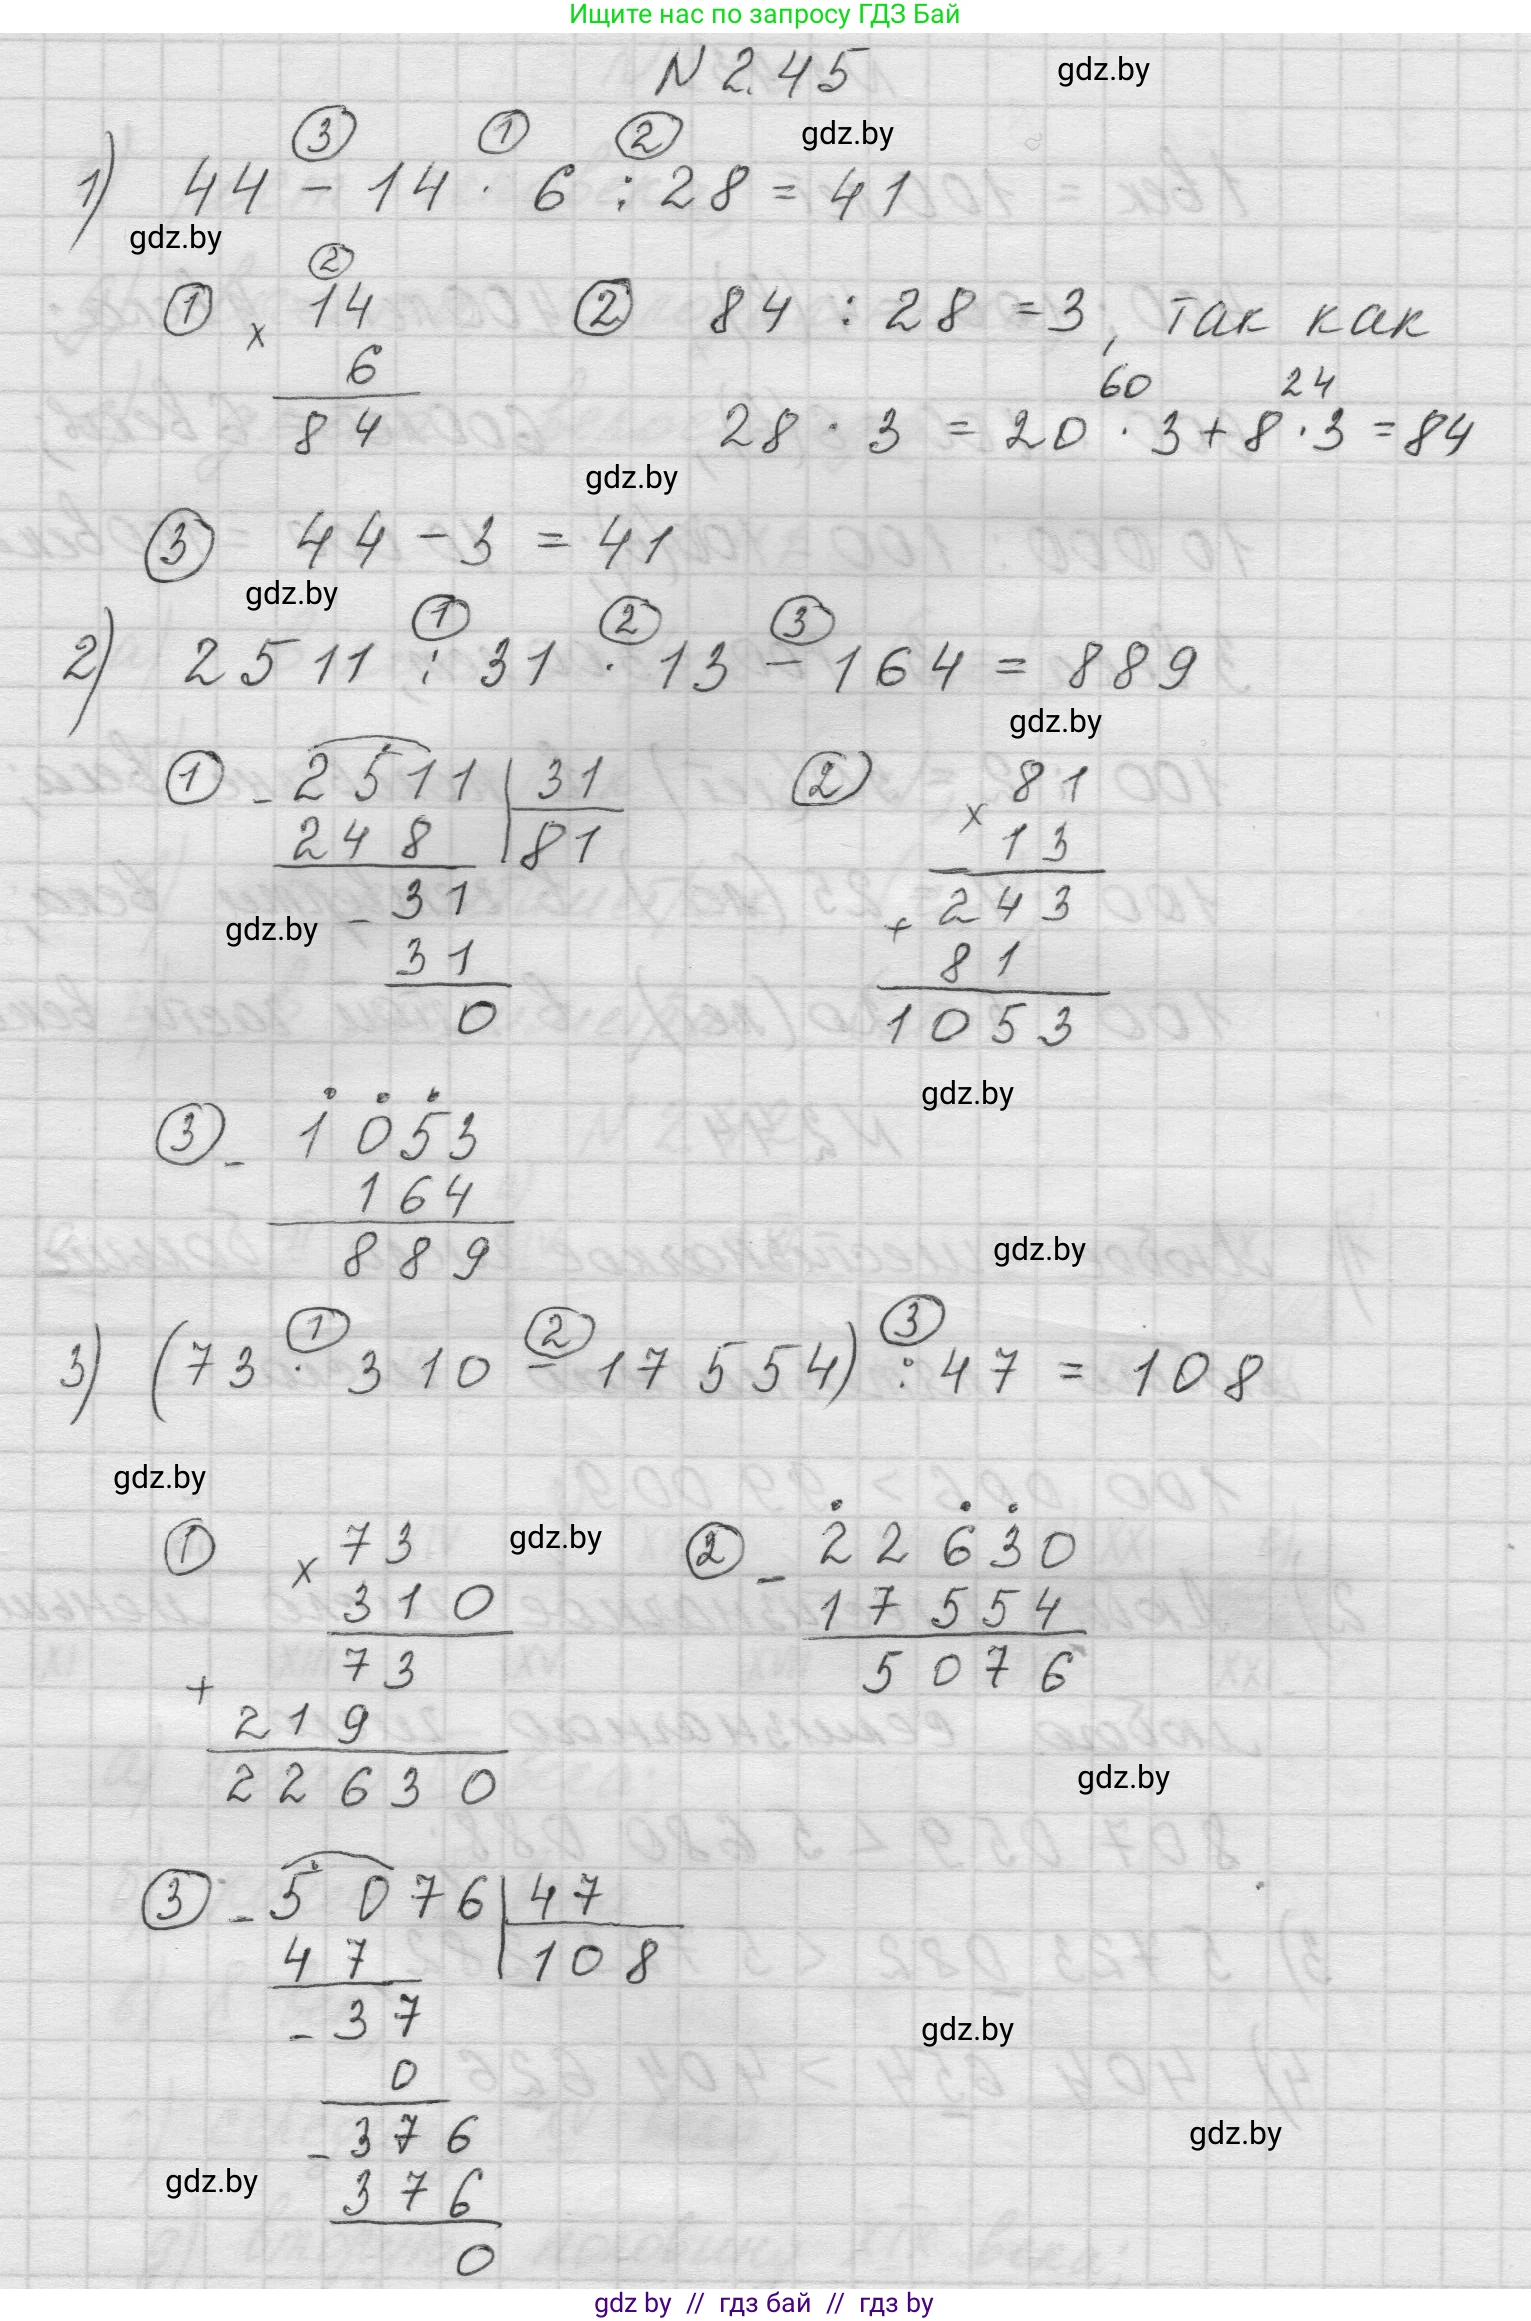 Ищите нас по запросу ГДЗ Бай
N 2.45
gdz.by
③ ① ②
gdz.by
1) 44 - 14 · 6 : 28 = 41
gdz.by
②
① 14
×
6
84
② 84 : 28 = 3, так как
60 24
28 · 3 = 20 · 3 + 8 · 3 = 84
gdz.by
③ 44 - 3 = 41
gdz.by
① ② ③
2) 2511 : 31 · 13 - 164 = 889
gdz.by
① - 2511 | 31
248 | 81
- 31
31
0
gdz.by
② 81
×
13
243
+
81
1053
gdz.by
③ - 1053
164
889
gdz.by
① ② ③
3) (73 · 310 - 17554) : 47 = 108
gdz.by
① 73
×
310
73
+
219
22630
gdz.by
② - 22630
17554
5076
gdz.by
③ - 5076 | 47
47 | 108
- 37
0
- 376
376
0
gdz.by
gdz.by
gdz.by
gdz by // гдз бай // гдз by